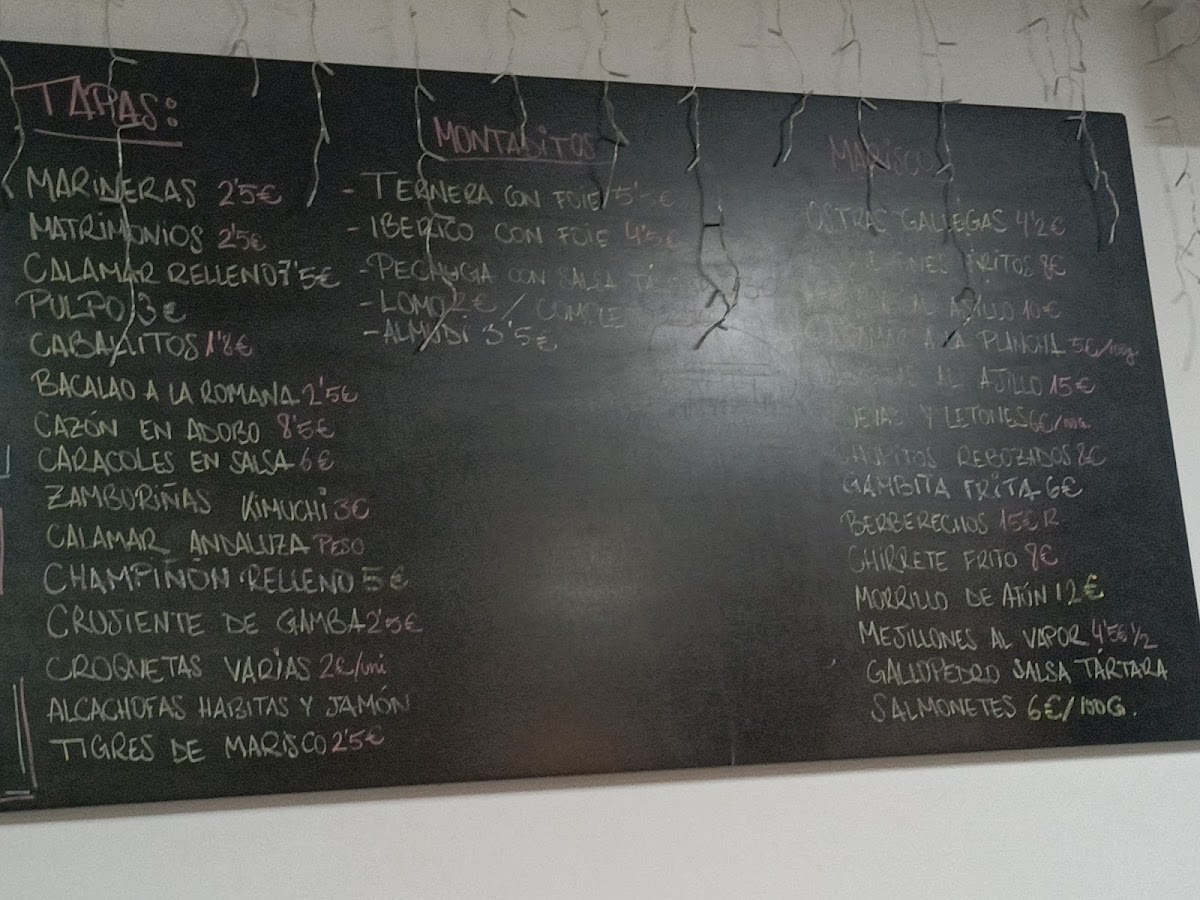 TAPAS:
MARINERAS 2'5€
MATRIMONIOS 2'5€
CALAMAR RELLENO 7'5€
PULPO 3€
CABALLITOS 1'8€
BACALAO A LA ROMANA 2'5€
CAZÓN EN ADOBO 8'5€
CARACOLES EN SALSA 6€
ZAMBURIÑAS KIMUCHI 3€
CALAMAR ANDALUZA PESO
CHAMPIÑON RELLENO 5€
CRUJIENTE DE GAMBA 2'5€
CROQUETAS VARIAS 2€/uni
ALCACHOFAS HABITAS Y JAMÓN
TIGRES DE MARISCO 2'5€
MONTADITOS
- TERNERA CON FOIE 5'5€
- IBERICO CON FOIE 4'5€
- PECHUGA CON SALSA
- LOMO 2€ /
- ALMUDI 3'5€
MARISCO
OSTRAS GALLEGAS 4'2€
FRITOS 8€
AJILLO 10€
A LA PLANCHA 5€/100g
AL AJILLO 15€
Y LETONES 6€/100G
CHOPITOS REBOZADOS 8€
GAMBITA FRITA 6€
BERBERECHOS 15€ R
CHIRRETE FRITO 8€
MORRILLO DE ATÚN 12€
MEJILLONES AL VAPOR 4'5€ 1/2
GALLOPEDRO SALSA TÁRTARA
SALMONETES 6€/100G.